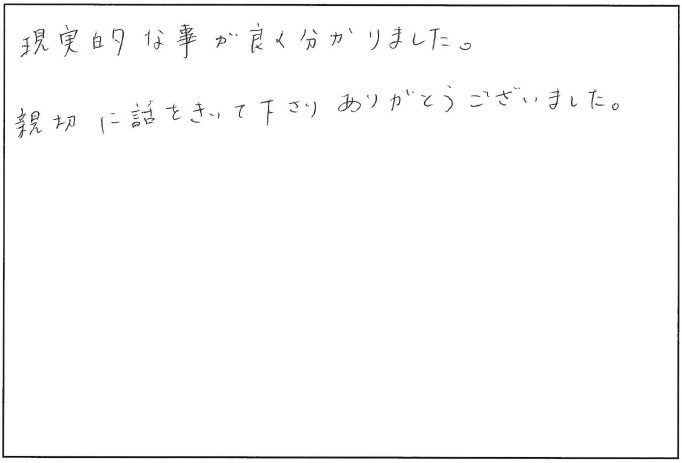 現実的な事が良く分かりました。
親切に話をきいて下さりありがとうございました。